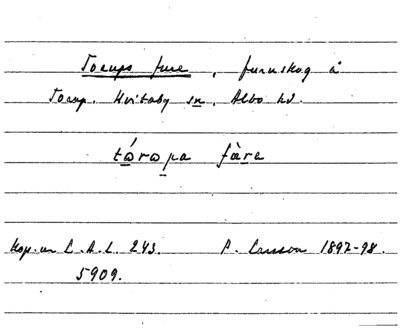 Torups fure, furuskog å
Torup. Hvitaby sn, Albo hd.
tórωpa fàre
Kop. ur L.A.L. 243. P. Larsson 1897-98.
5909.